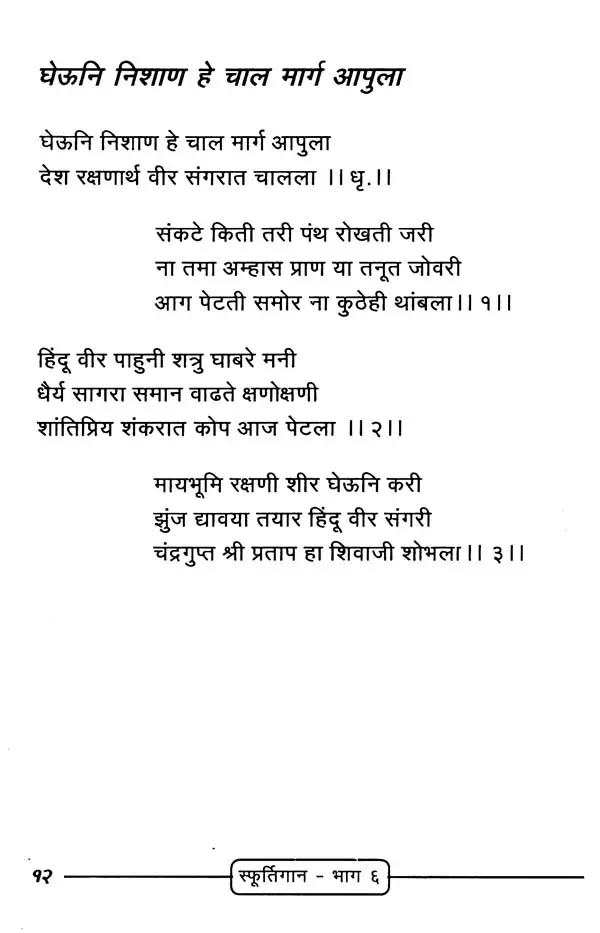 घेऊनि निशाण हे चाल मार्ग आपुला
घेऊनि निशाण हे चाल मार्ग आपुला
देश रक्षणार्थ वीर संगरात चालला ।। धृ.।।
संकटे किती तरी पंथ रोखती जरी
ना तमा अम्हास प्राण या तनूत जोवरी
आग पेटती समोर ना कुठेही थांबला।। १।।
हिंदू वीर पाहुनी शत्रु घाबरे मनी
धैर्य सागरा समान वाढते क्षणोक्षणी
शांतिप्रिय शंकरात कोप आज पेटला ।। २।।
मायभूमि रक्षणी शीर घेऊनि करी
झुंज द्यावया तयार हिंदू वीर संगरी
चंद्रगुप्त श्री प्रताप हा शिवाजी शोभला।। ३।।
१२
स्फूर्तिगान - भाग ६